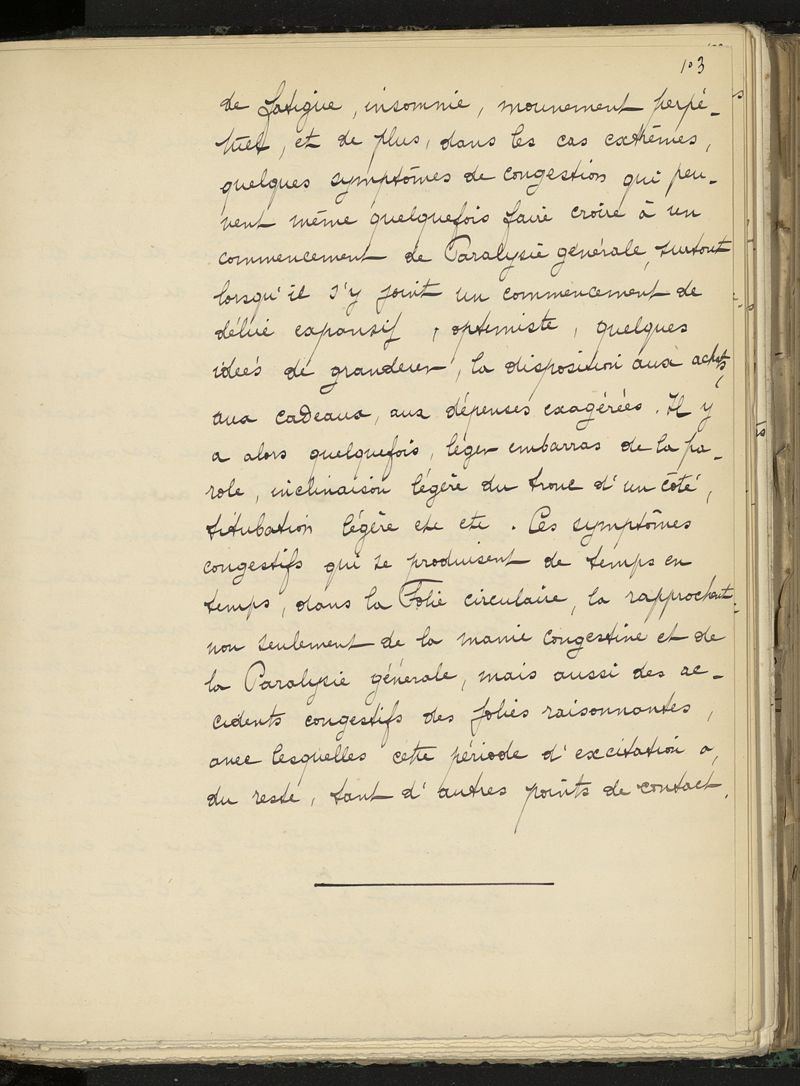 103
de fatigue, insomnie, mouvement perpé-
tuel, et de plus, dans les cas extrêmes,
quelques symptômes de congestion qui peu-
vent même quelquefois faire croire à un
commencement de Paralysie générale, surtout
lorsqu'il s'y joint un commencement de
délire expansif, optimiste, quelques
idées de grandeur, la disposition aux achats,
aux cadeaux, aux dépenses exagérées. Il y
a alors quelquefois, léger embarras de la pa-
role, inclinaison légère du tronc d'un côté,
titubation légère etc etc. Ces symptômes
congestifs qui se produisent de temps en
temps, dans la Folie circulaire, la rapprochent
non seulement de la manie congestive et de
la Paralysie générale, mais aussi des ac-
cidents congestifs des folies raisonnantes,
avec lesquelles cette période d'excitation a,
du reste, tant d'autres points de contact.